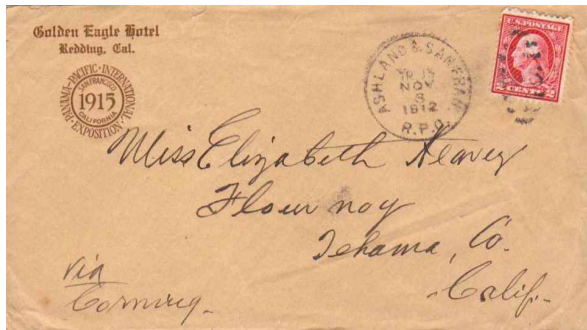 Golden Eagle Hotel
Redding, Cal.
PANAMA-PACIFIC-INTERNATIONAL
EXPOSITION
SAN FRANCISCO
1915
CALIFORNIA
ASHLAND & SAN FRAN.
NOV
3
1912
R.P.O.
U.S. POSTAGE
2 CENTS 2
Miss Elizabeth
Flournoy
Tehama, Co.
Calif.
Via
Corning